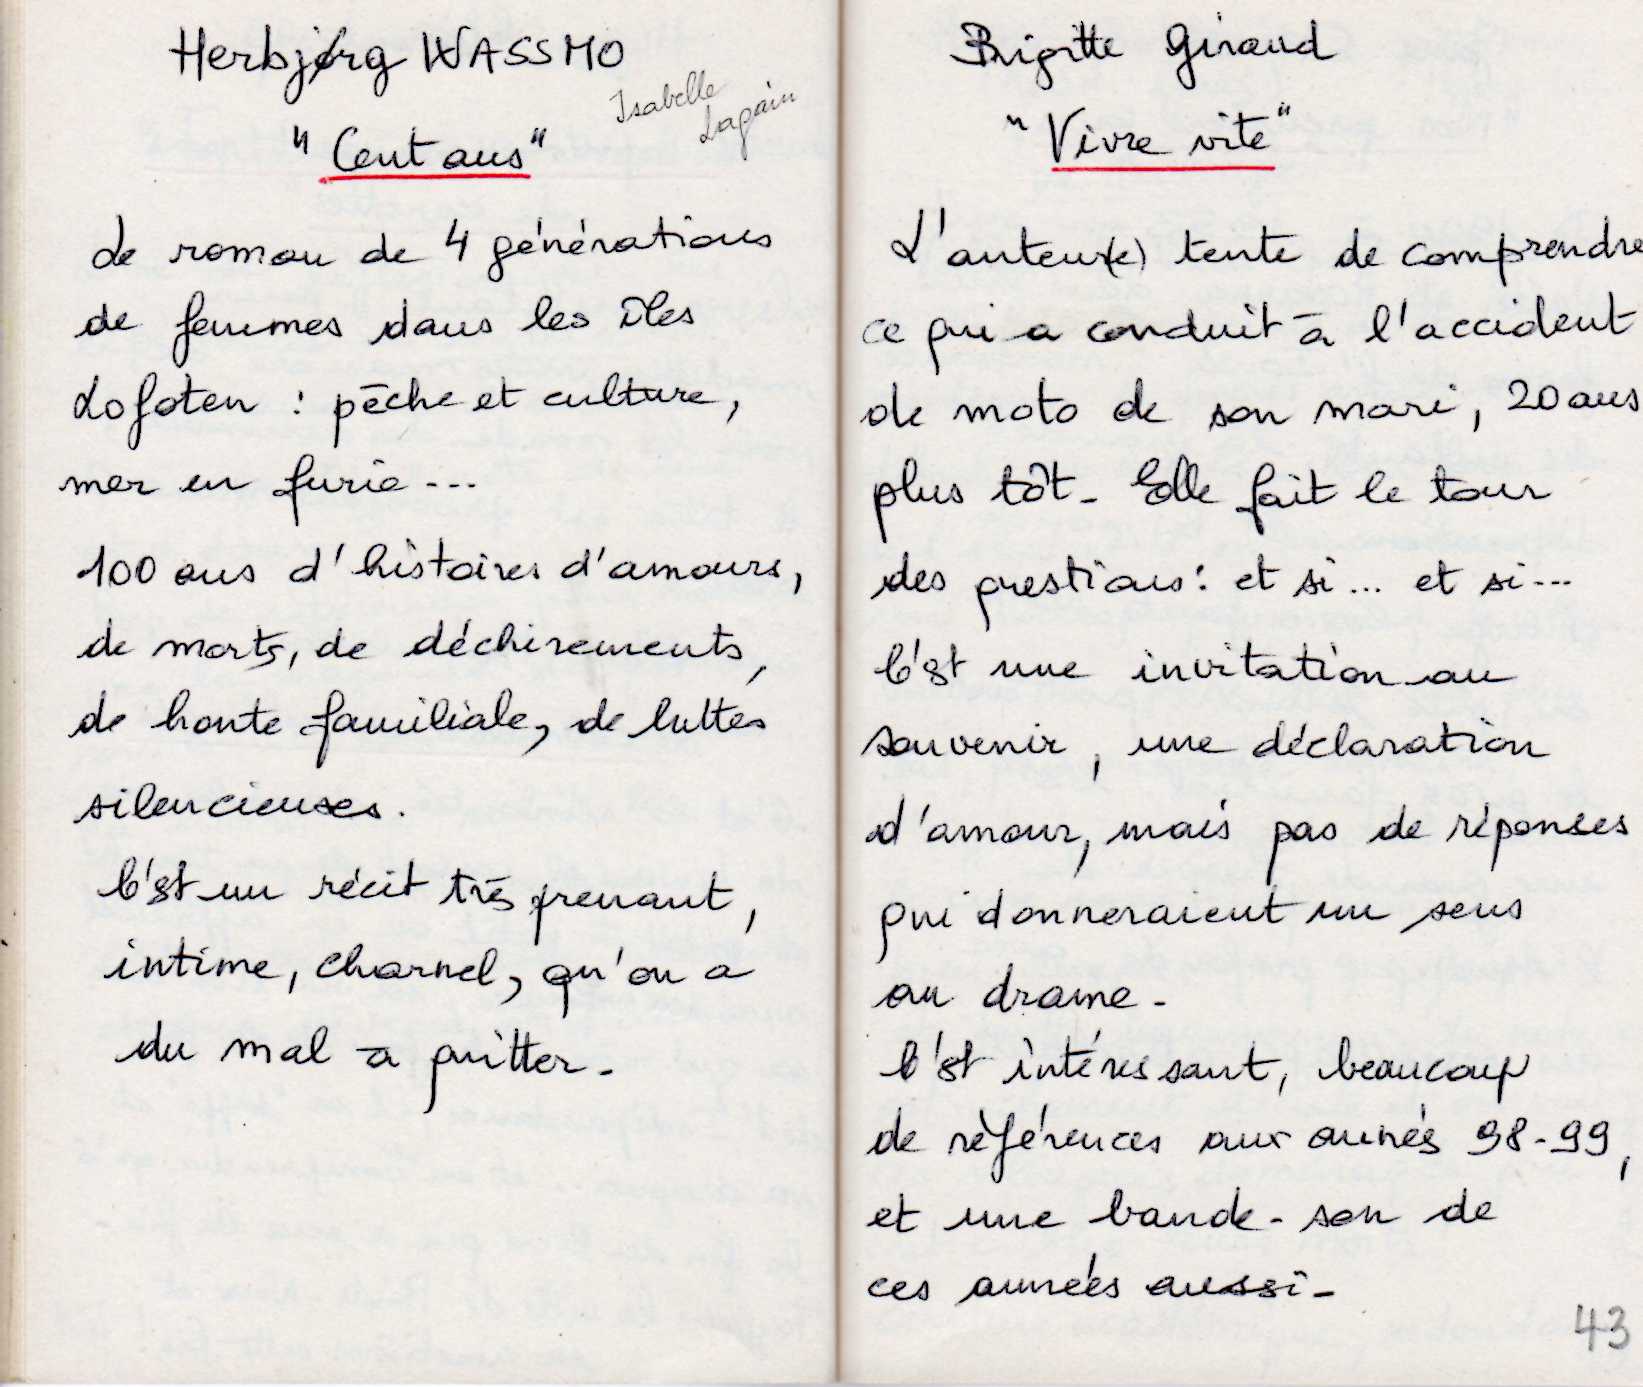 Herbjørg WASSMO
Isabelle
Lagain
"Cent ans"
Le roman de 4 générations
de femmes dans les îles
Lofoten : pêche et culture,
mer en furie ---
100 ans d'histoires d'amours,
de morts, de déchirements,
de honte familiale, de luttes
silencieuses.
C'est un récit très prenant,
intime, charnel, qu'on a
du mal à quitter.
Brigitte Giraud
"Vivre vite"
L'auteur(e) tente de comprendre
ce qui a conduit à l'accident
de moto de son mari, 20 ans
plus tôt - Elle fait le tour
des questions : et si ... et si ---
C'est une invitation au
souvenir, une déclaration
d'amour, mais pas de réponses
qui donneraient un sens
au drame -
C'est intéressant, beaucoup
de références aux années 98-99,
et une bande-son de
ces années aussi -
43